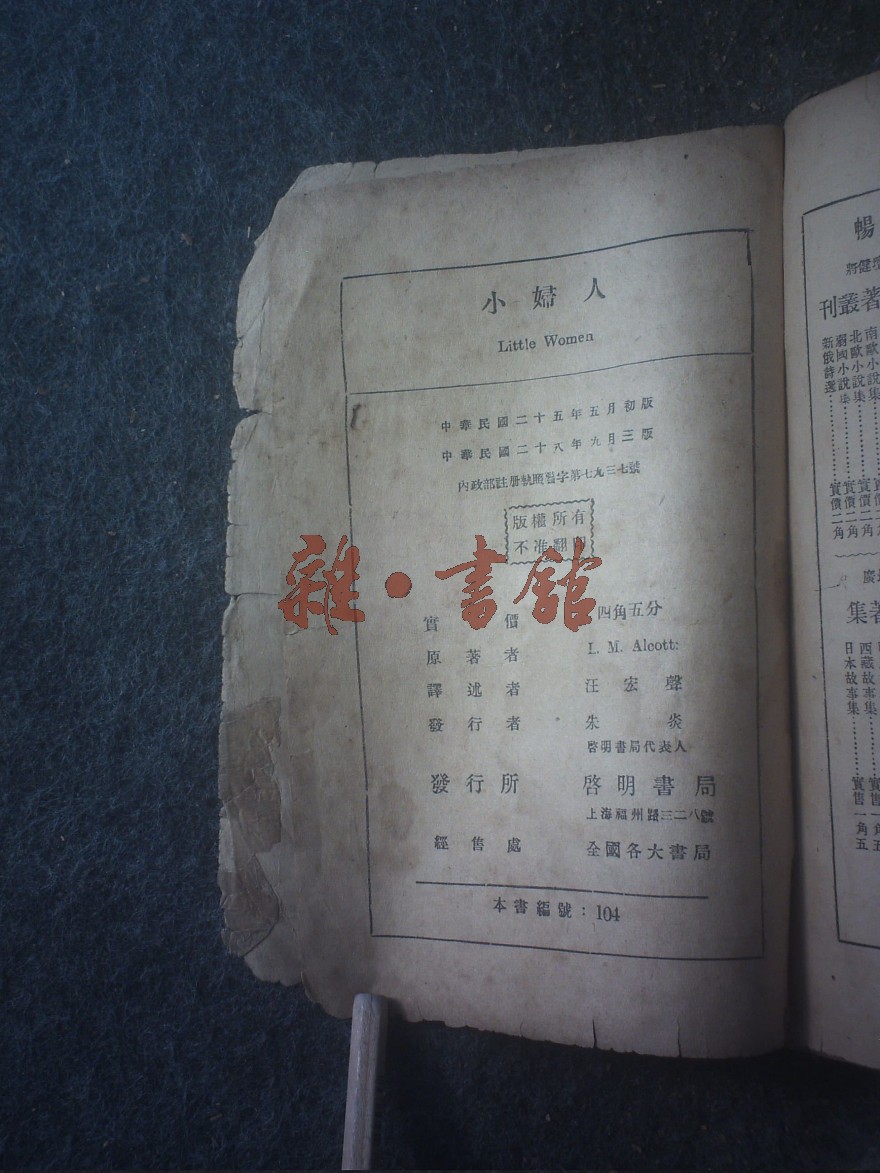 小婦人
Little Women
中華民國二十五年五月初版
中華民國二十八年九月三版
內政部註册執照警字第七九三七號
版權所有
不准翻印
雜·書館
實價 四角五分
原著者 L. M. Alcott:
譯述者 汪宏聲
發行者 朱炎
啓明書局代表人
發行所 啓明書局
上海福州路三二八號
經售處 全國各大書局
本書編號：104
暢
著叢刊
南歐小說集
北歐小說集………實價二角
弱國小說集………實價二角
新俄詩選………實價二角
著集
西藏故事集
日本故事集………實售一角五